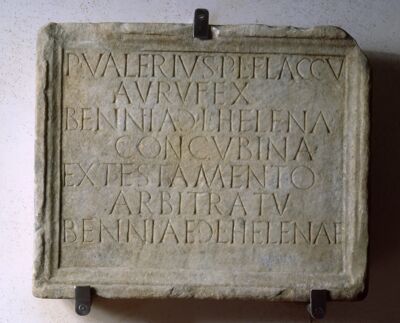 P VALERIVS P L FLACCV
AVRVFEX
BENNIA Ↄ L HELENA
CONCVBINA
EX TESTAMENTO
ARBITRATV
BENNIAE Ↄ L HELENAE